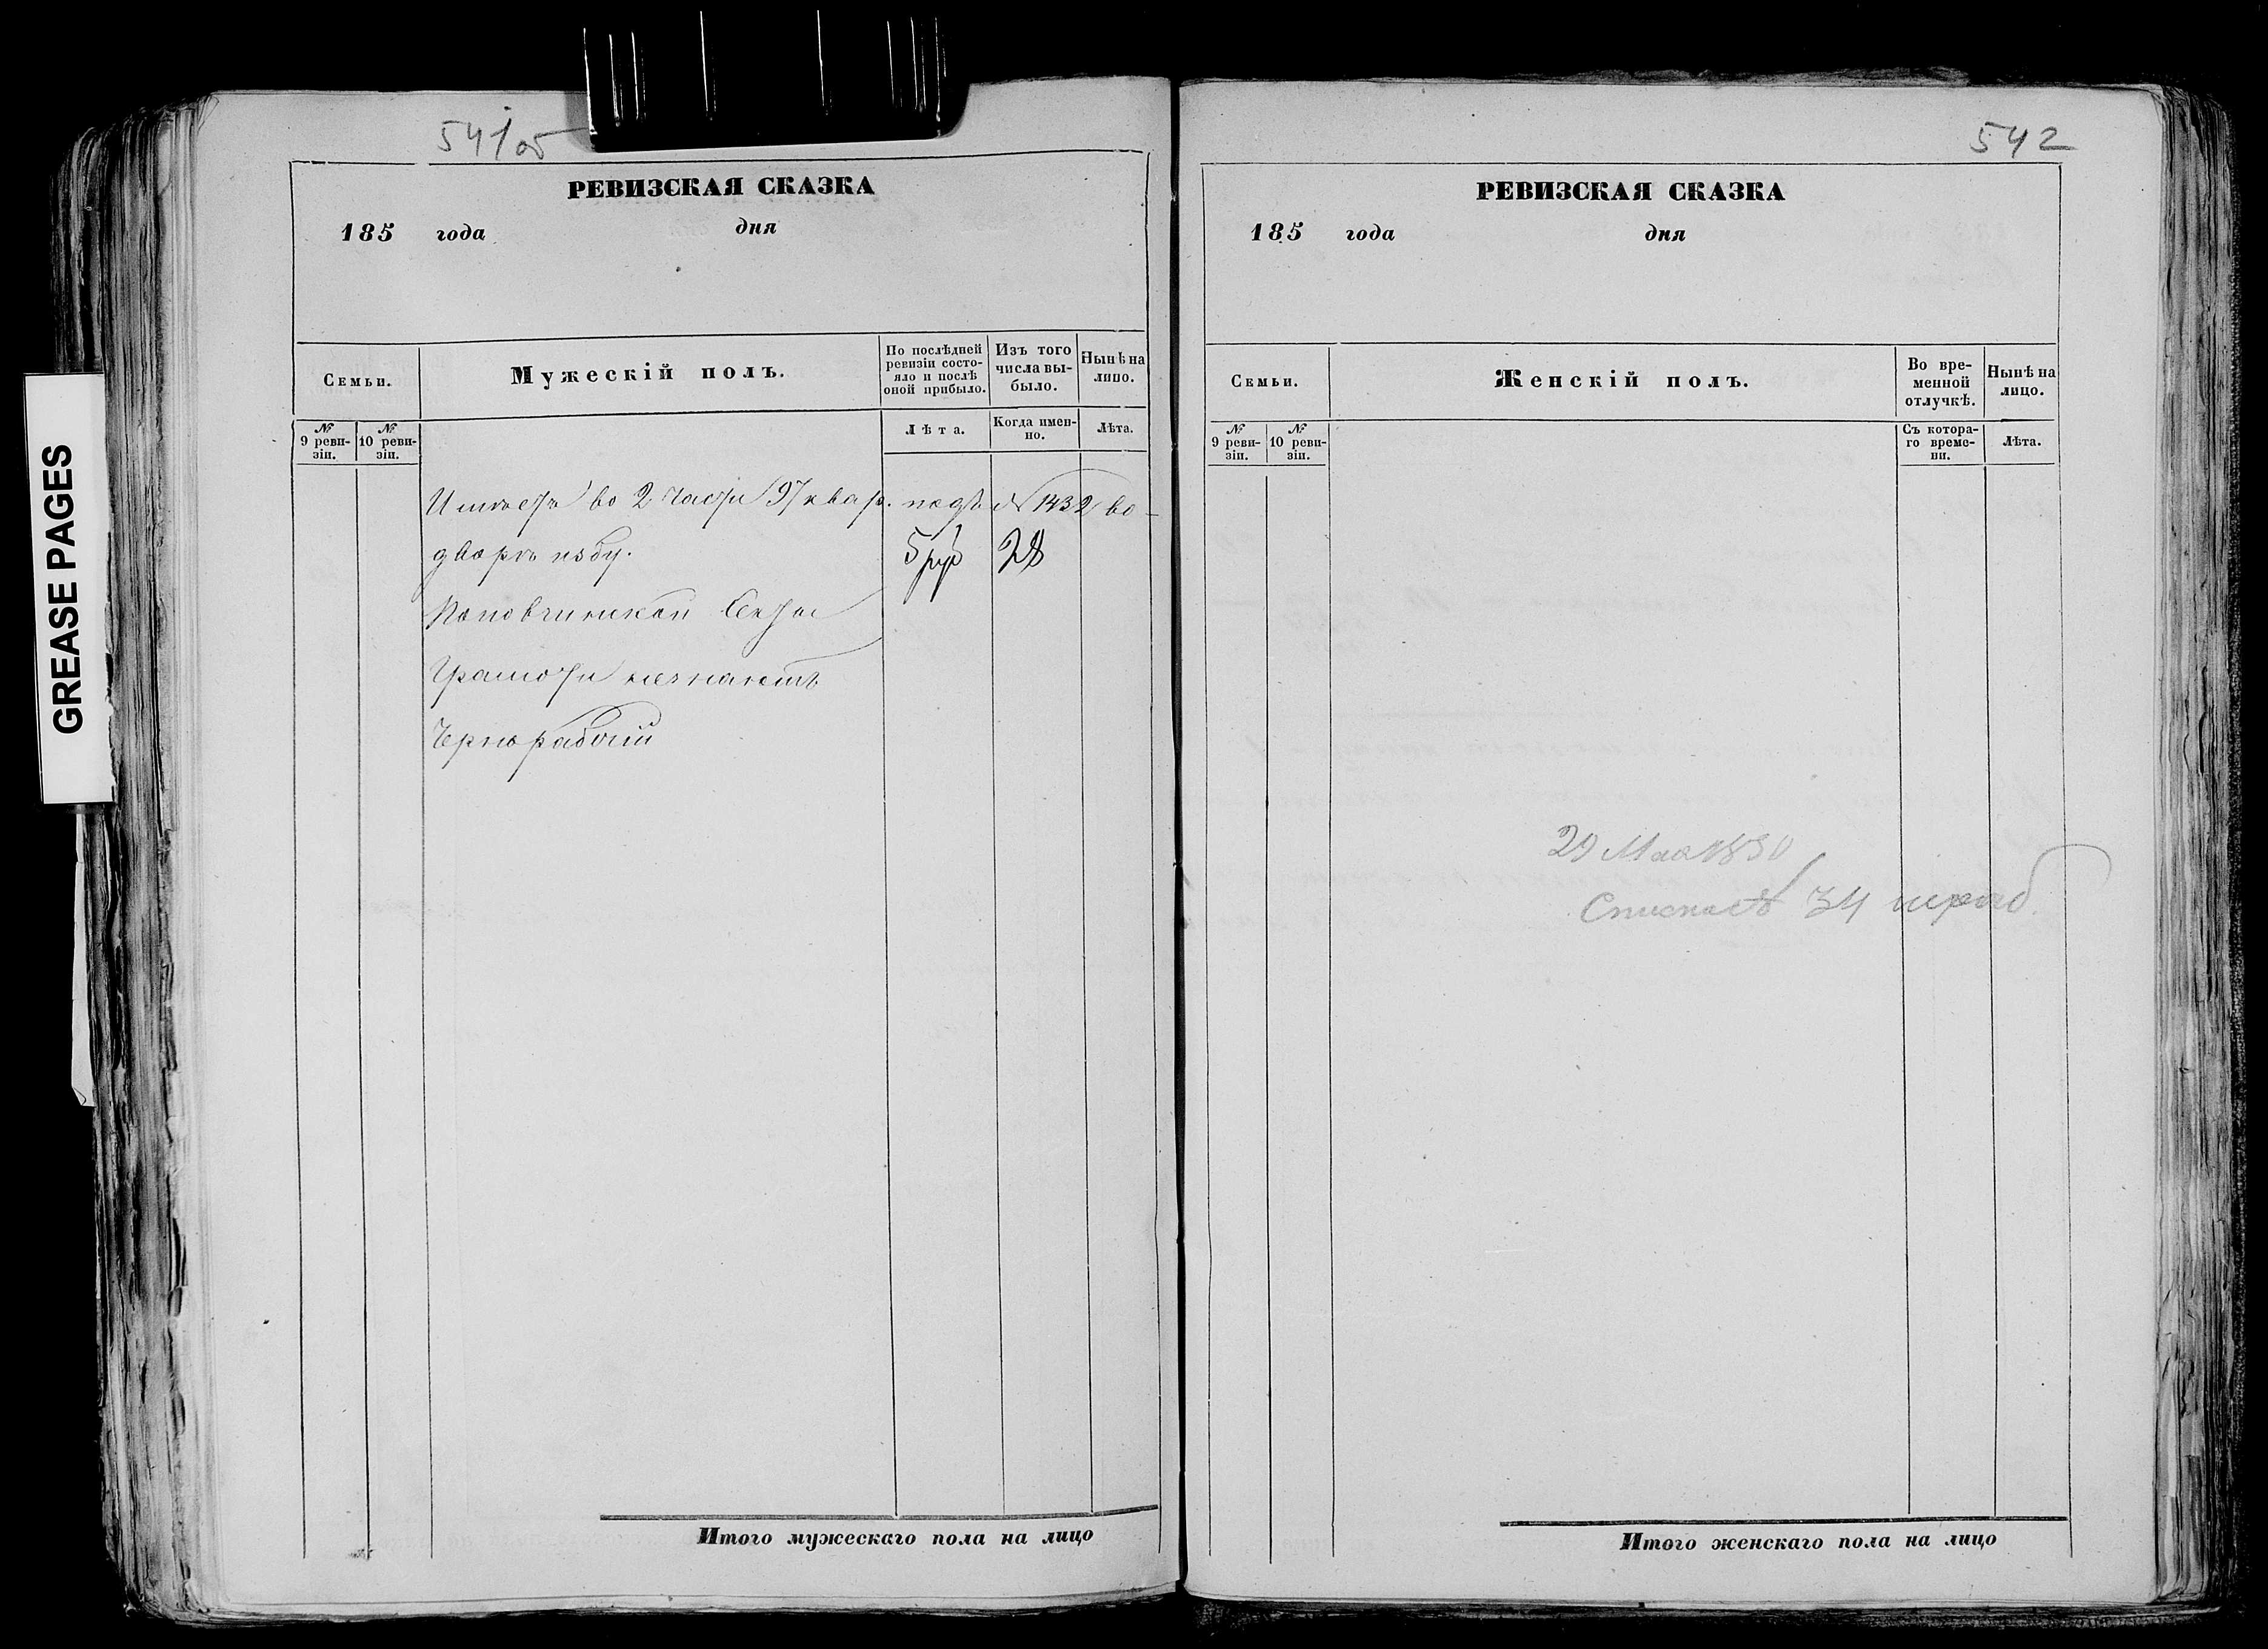 GREASE PAGES
541об
РЕВИЗСКАЯ СКАЗКА
185 года дня
Семьи.
Мужескій полъ.
По послѣдней ревизіи состояло и послѣ оной прибыло.
Изъ того числа выбыло.
Нынѣ на лицо.
№ 9 ревизіи.
№ 10 ревизіи.
Лѣта.
Когда именно.
Лѣта.
во 2 части 97 квар. подъ № 1432 во-
дворъ избу. 5 руб 28
Поповчинской Секты
Грамоти незнаютъ
Чернорабочій
Итого мужескаго пола на лицо
542
РЕВИЗСКАЯ СКАЗКА
185 года дня
Семьи.
Женскій полъ.
Во временной отлучкѣ.
Нынѣ на лицо.
№ 9 ревизіи.
№ 10 ревизіи.
Съ котораго времени.
Лѣта.
29 Мая
34
Итого женскаго пола на лицо